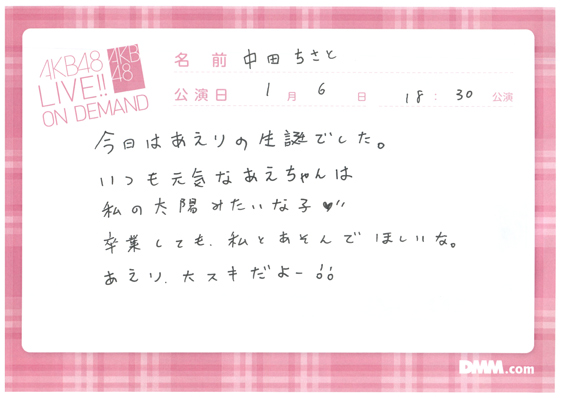 AKB48
LIVE!!
ON DEMAND
AKB
48
名前 中田ちさと
公演日 1月6日 18:30公演
今日はあえりの生誕でした。
いつも元気なあえちゃんは
私の太陽みたいな子♥
卒業しても、私とあそんでほしいな。
あえり、大スキだよー!!
DMM.com